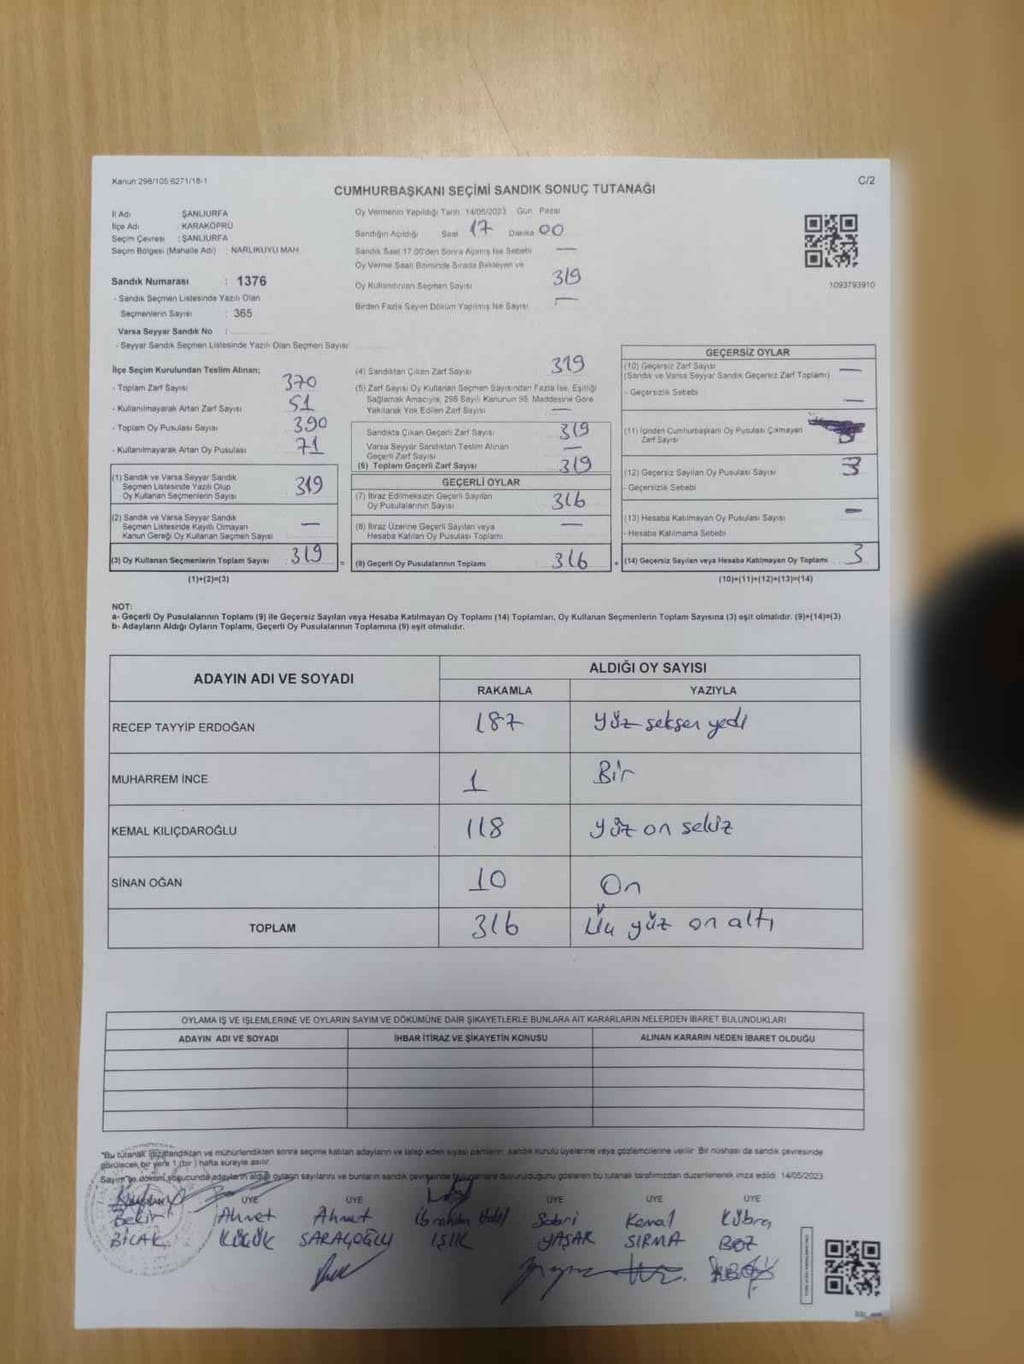 Kanun:298/105;6271/18-1
C/2
CUMHURBAŞKANI SEÇİMİ SANDIK SONUÇ TUTANAĞI
İl Adı : ŞANLIURFA
İlçe Adı : KARAKÖPRÜ
Seçim Çevresi : ŞANLIURFA
Seçim Bölgesi (Mahalle Adı) : NARLIKUYU MAH
Sandık Numarası : 1376
- Sandık Seçmen Listesinde Yazılı Olan
Seçmenlerin Sayısı : 365
Varsa Seyyar Sandık No :
- Seyyar Sandık Seçmen Listesinde Yazılı Olan Seçmen Sayısı
Oy Vermenin Yapıldığı Tarih 14/05/2023 Gün Pazar
Sandığın Açıldığı Saat 17 Dakika 00
Sandık Saat 17.00'den Sonra Açılmış İse Sebebi —
Oy Verme Saati Bitiminde Sırada Bekleyen ve
Oy Kullandırılan Seçmen Sayısı 319
Birden Fazla Sayım Döküm Yapılmış İse Sayısı —
1093793910
İlçe Seçim Kurulundan Teslim Alınan;
- Toplam Zarf Sayısı 370
- Kullanılmayarak Artan Zarf Sayısı 51
- Toplam Oy Pusulası Sayısı 390
- Kullanılmayarak Artan Oy Pusulası 71
(1) Sandık ve Varsa Seyyar Sandık
Seçmen Listesinde Yazılı Olup
Oy Kullanan Seçmenlerin Sayısı 319
(2) Sandık ve Varsa Seyyar Sandık
Seçmen Listesinde Kayıtlı Olmayan
Kanun Gereği Oy Kullanan Seçmen Sayısı —
(3) Oy Kullanan Seçmenlerin Toplam Sayısı 319
(1)+(2)=(3)
(4) Sandıktan Çıkan Zarf Sayısı 319
(5) Zarf Sayısı Oy Kullanan Seçmen Sayısından Fazla İse, Eşitliği
Sağlamak Amacıyla, 298 Sayılı Kanunun 98. Maddesine Göre
Yakılarak Yok Edilen Zarf Sayısı —
Sandıkta Çıkan Geçerli Zarf Sayısı 319
Varsa Seyyar Sandıktan Teslim Alınan
Geçerli Zarf Sayısı —
(6) Toplam Geçerli Zarf Sayısı 319
GEÇERLİ OYLAR
(7) İtiraz Edilmeksizin Geçerli Sayılan
Oy Pusulalarının Sayısı 316
(8) İtiraz Üzerine Geçerli Sayılan veya
Hesaba Katılan Oy Pusulaları Toplamı —
= (9) Geçerli Oy Pusulalarının Toplamı 316
GEÇERSİZ OYLAR
(10) Geçersiz Zarf Sayısı
(Sandık ve Varsa Seyyar Sandık Geçersiz Zarf Toplamı) —
- Geçersizlik Sebebi —
(11) İçinden Cumhurbaşkanı Oy Pusulası Çıkmayan
Zarf Sayısı
(12) Geçersiz Sayılan Oy Pusulası Sayısı 3
- Geçersizlik Sebebi
(13) Hesaba Katılmayan Oy Pusulası Sayısı —
- Hesaba Katılmama Sebebi
+ (14) Geçersiz Sayılan veya Hesaba Katılmayan Oy Toplamı 3
(10)+(11)+(12)+(13)=(14)
NOT:
a- Geçerli Oy Pusulalarının Toplamı (9) ile Geçersiz Sayılan veya Hesaba Katılmayan Oy Toplamı (14) Toplamları, Oy Kullanan Seçmenlerin Toplam Sayısına (3) eşit olmalıdır. (9)+(14)=(3)
b- Adayların Aldığı Oyların Toplamı, Geçerli Oy Pusulalarının Toplamına (9) eşit olmalıdır.
ADAYIN ADI VE SOYADI ALDIĞI OY SAYISI
RAKAMLA YAZIYLA
RECEP TAYYİP ERDOĞAN 187 yüz seksen yedi
MUHARREM İNCE 1 Bir
KEMAL KILIÇDAROĞLU 118 yüz on sekiz
SİNAN OĞAN 10 On
TOPLAM 316 Üç yüz on altı
OYLAMA İŞ VE İŞLEMLERİNE VE OYLARIN SAYIM VE DÖKÜMÜNE DAİR ŞİKAYETLERLE BUNLARA AİT KARARLARIN NELERDEN İBARET BULUNDUKLARI
ADAYIN ADI VE SOYADI İHBAR İTİRAZ VE ŞİKAYETİN KONUSU ALINAN KARARIN NEDEN İBARET OLDUĞU
*Bu tutanak imzalandıktan ve mühürlendikten sonra seçime katılan adayların ve talep eden siyasi partilerin, sandık kurulu üyelerine veya gözlemcilerine verilir. Bir nüshası da sandık çevresinde
görülecek bir yere 1 (bir) hafta süreyle asılır.
Sayım ve döküm sonucunda adayların aldığı oyların sayılarını ve bunların sandık çevresinde duyurulduğunu gösteren bu tutanak tarafımızdan düzenlenerek imza edildi. 14/05/2023
ÜYE ÜYE ÜYE ÜYE ÜYE
Bekir Ahmet Ahmet İbrahim Halil Sabri Kemal Kübra
BIÇAK KÜÇÜK SARAÇOĞLU IŞIK YAŞAR SIRMA BOZ